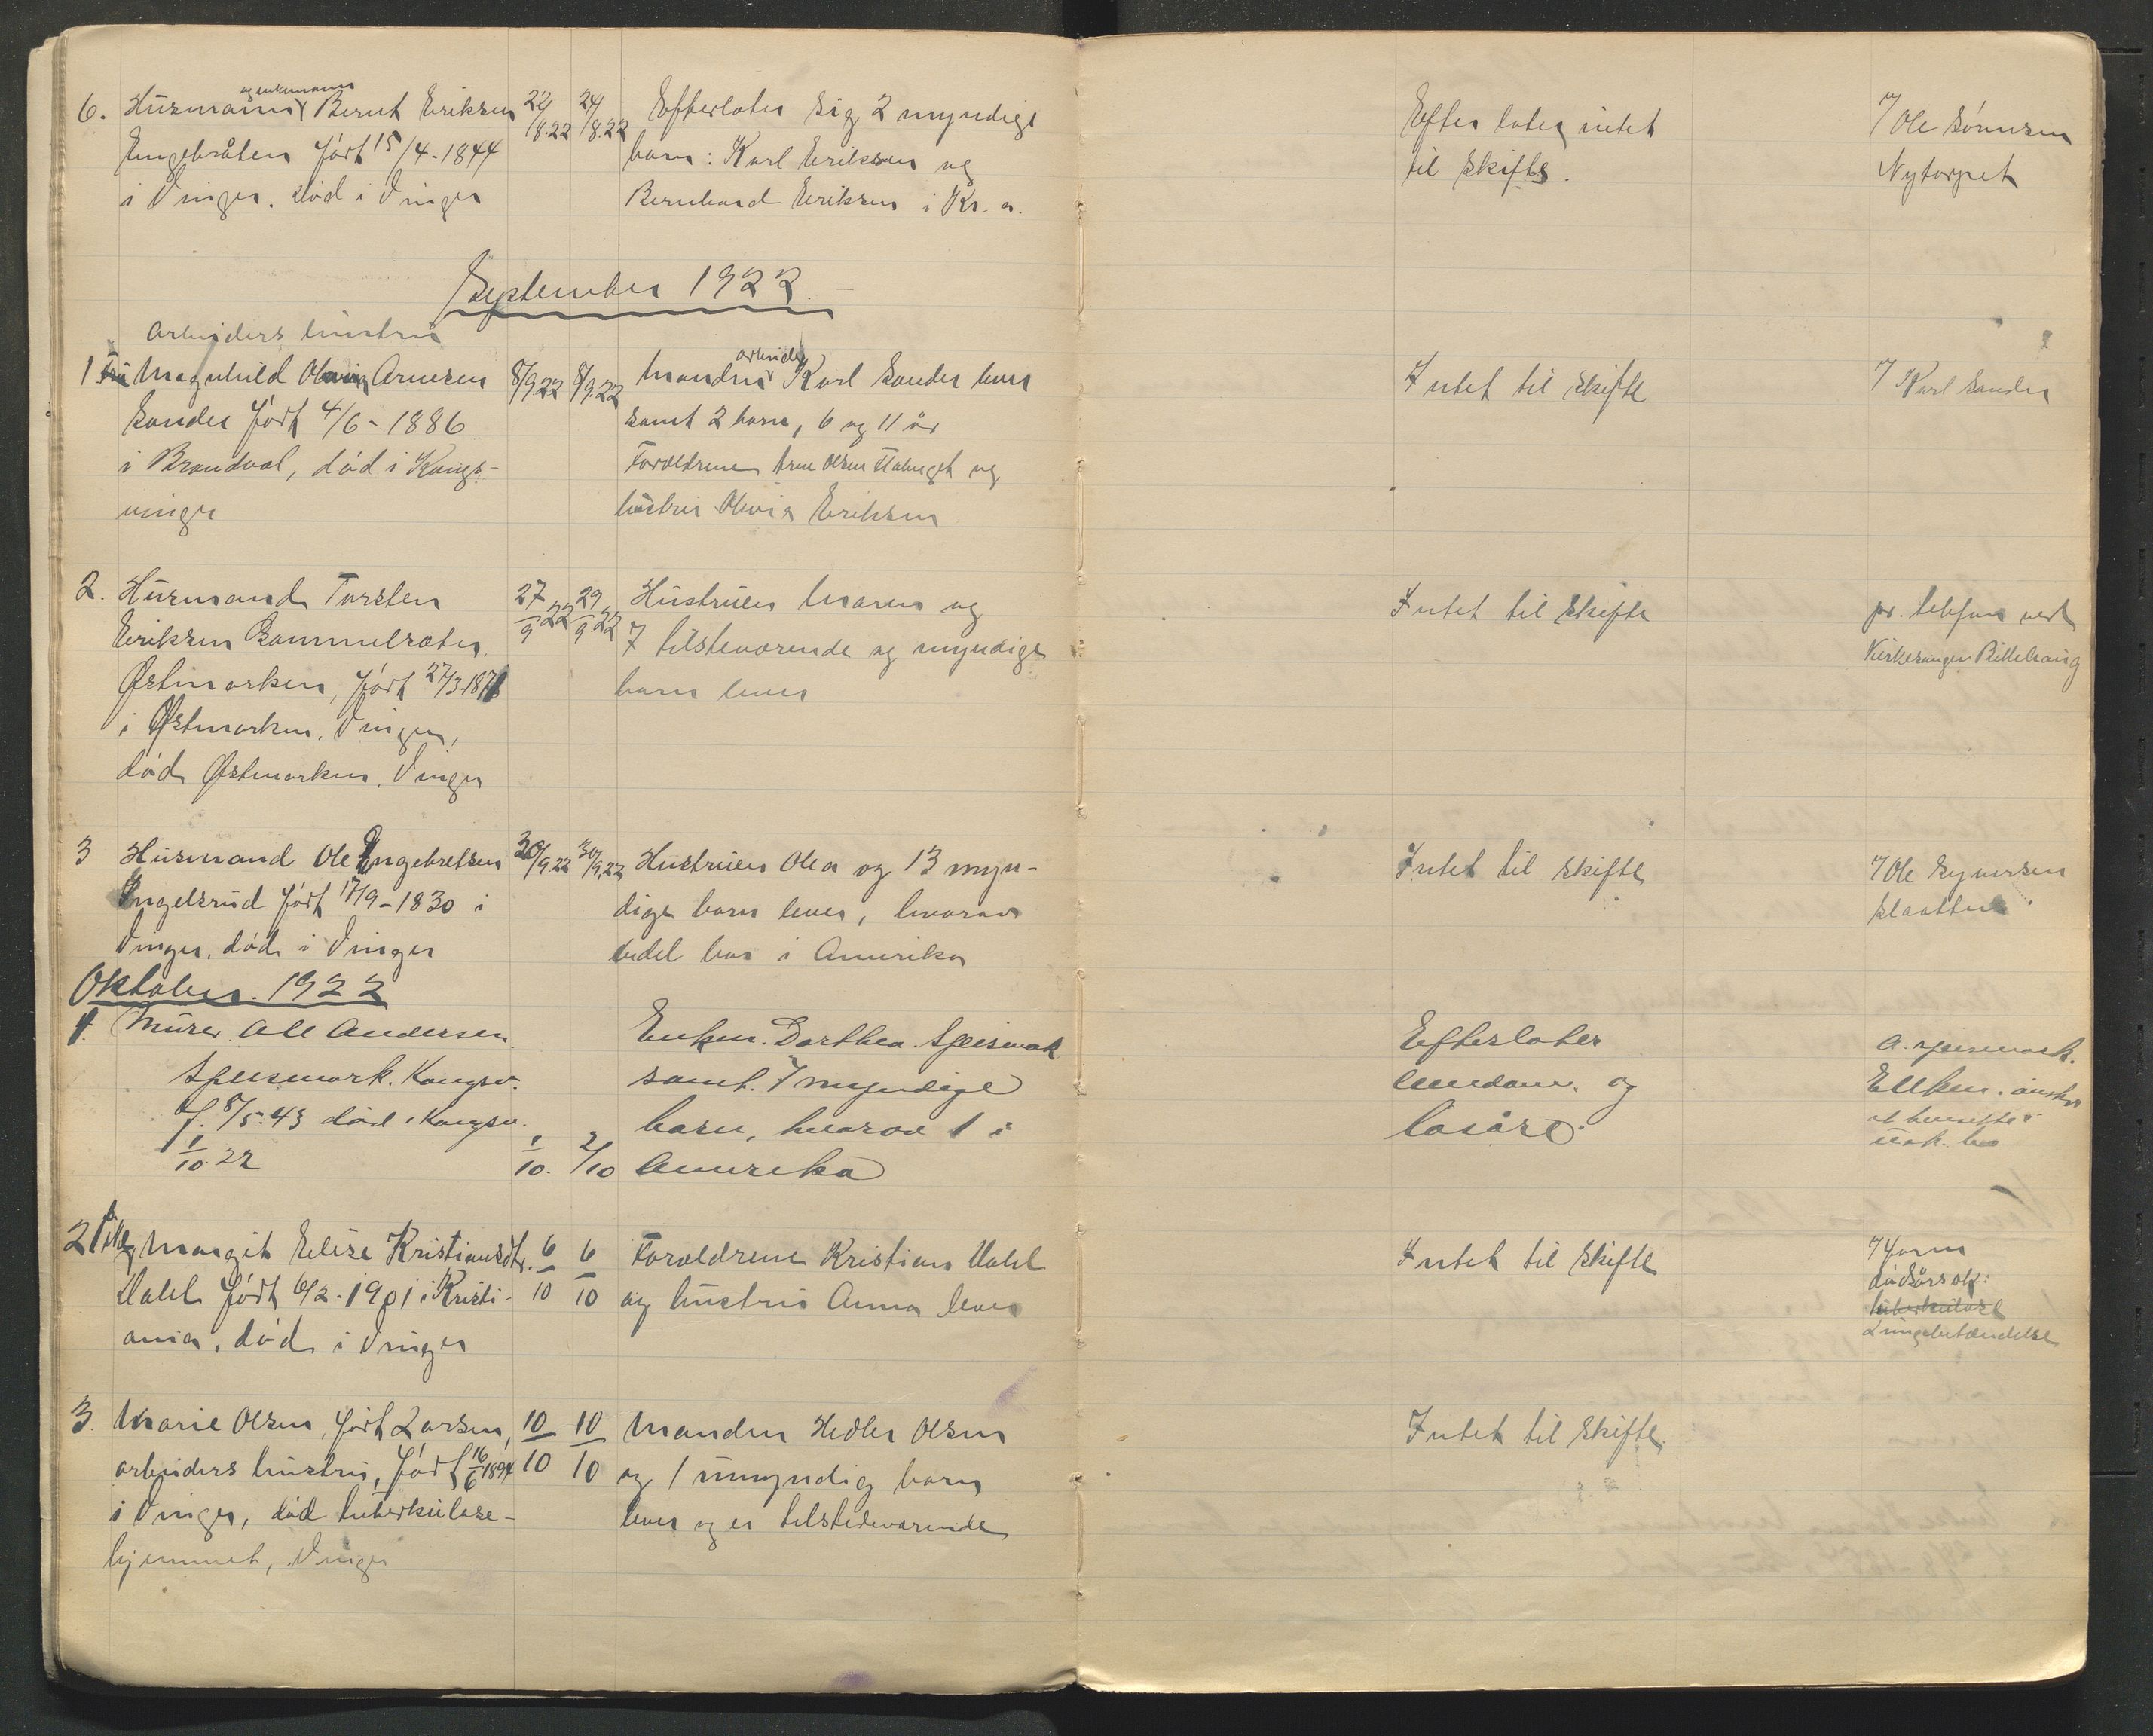 6. Husmann og enkemann Bernt Eriksen 22/8.22 24/8.22 Efterlater sig 2 myndige
Engebråten født 15/4-1844 barn: Karl Eriksen og
i Vinger. død i Vinger Bernhard Eriksen i Kr.a.
Efterlater intet
til skifte.
7 Ole Sønnsen
Nytorpet
September 1922
arbeiders hustru
1 Fru Magnhild Olivia Arnesen 8/9 22 8/9.22 Manden arbeider Karl Sander lever
Sander født 4/6-1886 samt 2 barn, 6 og 11 år
i Brandval, død i Kongs- Forældrene Arne Olsen og
vinger hustru Olivia Eriksen
Intet til skifte
7 Karl Sander
2. Husmand Torsten 27/9 22 29/9 22 Hustruen Maren og
Eriksen Gammelsæter, 7 tilsteværende og myndige
Østmarken, født 27/3-1871 barn lever
i Østmarken, Vinger,
død Østmarken, Vinger
Intet til skifte
pr. telefon ved
Kirkesanger
3 Husmand Ole Engebretsen 30/9 22 30/9.22 Hustruen Olea og 13 myn-
Ingelsrud født 17/9-1830 i dige barn lever, hvorav
Vinger, død i Vinger endel bor i Amerika
Intet til skifte
7 Ole Synersen
Slaatten
Oktober. 1922
1. Murer Ole Andersen Enken. Dorthea Speismark
Speismark. Kongsv. samt. 7 myndige
f. 8/5.43 død i Kongsv. barn, hvorav 1 i
1/10.22 1/10. 2/10 Amerika
Efterlater
eiendom. og
løsøre.
A. Speismark.
Enken. ønsker
at hensitte i
uskifte bo
2 Pike Margit Elise Kristiansdtr. 6/10 6/10 Forældrene Kristian Dahl
Dahl født 6/2-1901 i Kristi- og hustru Anna lever
ania, død i Vinger
Intet til skifte
7 Faren
dødsårsak:
tuberkulose
Lungebetændelse
3. Marie Olsen, født Larsen, 10/10 10/10 Manden Hedler Olsen
arbeiders hustru, født 16/6 1894 og 1 umyndig barn
i Vinger, død tuberkulose- lever og er tilstedeværende
hjemmet, Vinger
Intet til skifte.